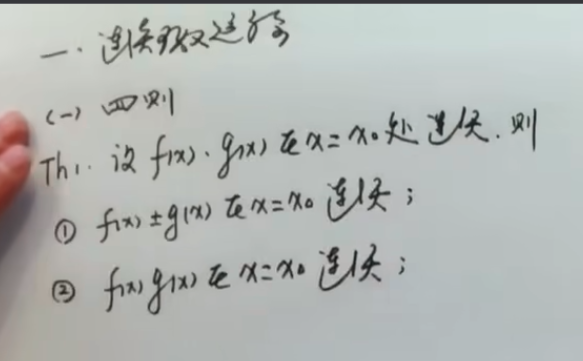 一. 连续函数运算
(一) 四则
Th1. 设 f(x)、g(x) 在 x=x₀ 处连续. 则
① f(x)±g(x) 在 x=x₀ 连续;
② f(x)g(x) 在 x=x₀ 连续;